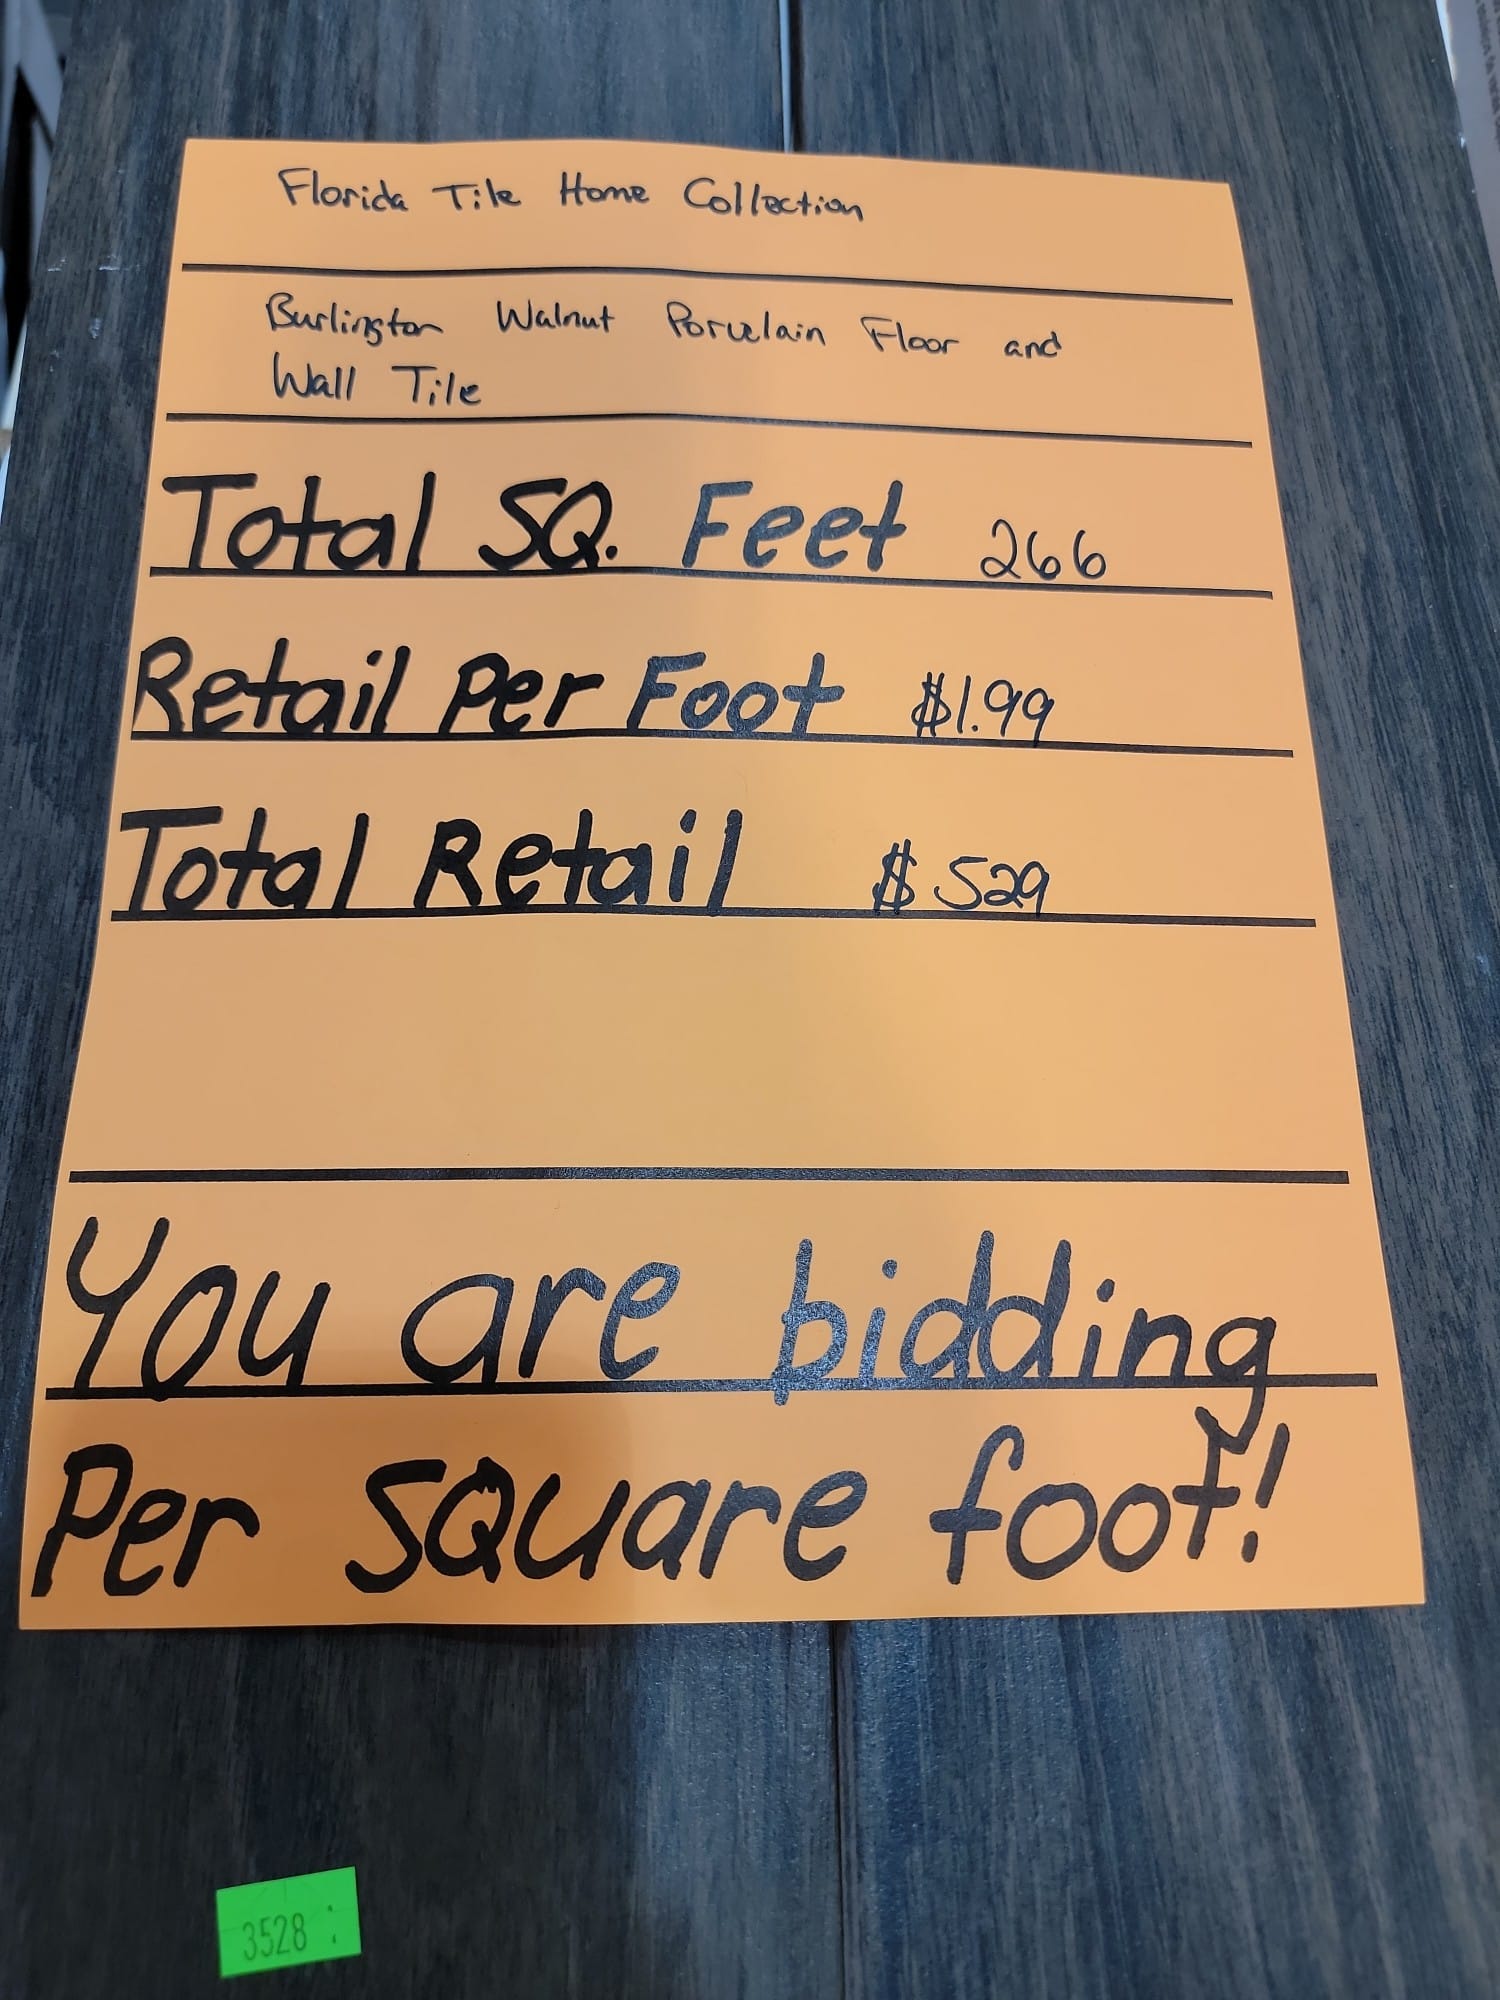 Florida Tile Home Collection
Burlington Walnut Porcelain Floor and
Wall Tile
Total SQ. Feet 266
Retail Per Foot $1.99
Total Retail $529
You are bidding
Per square foot!
3528